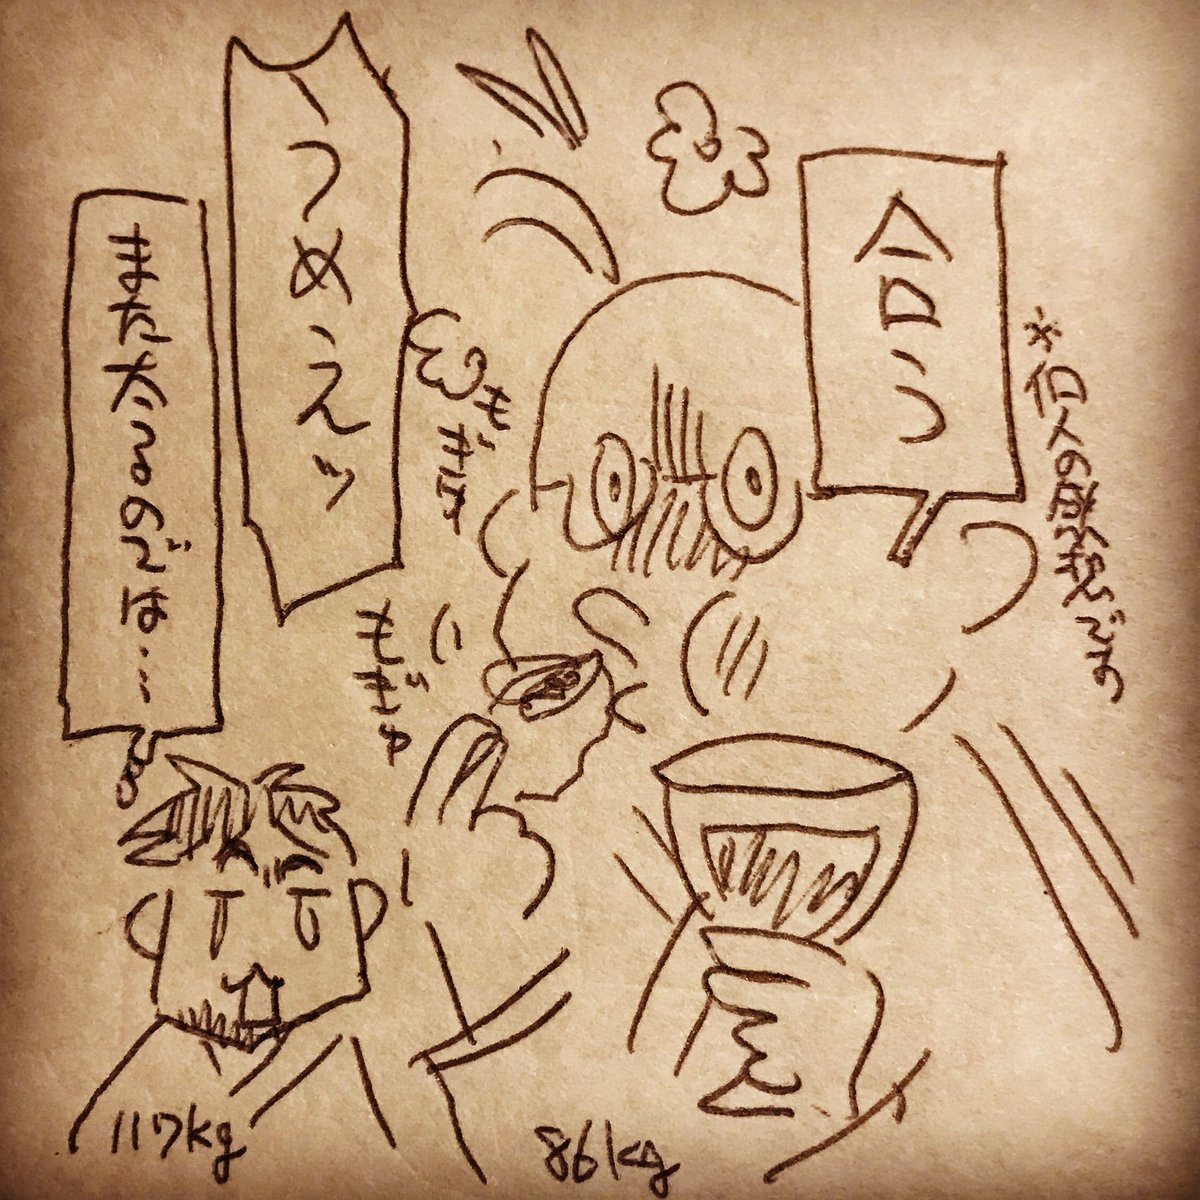 合う
※個人の感想です
うめえッ
もぎゅ
もぎゅ
また太るのでは…
117kg
86kg